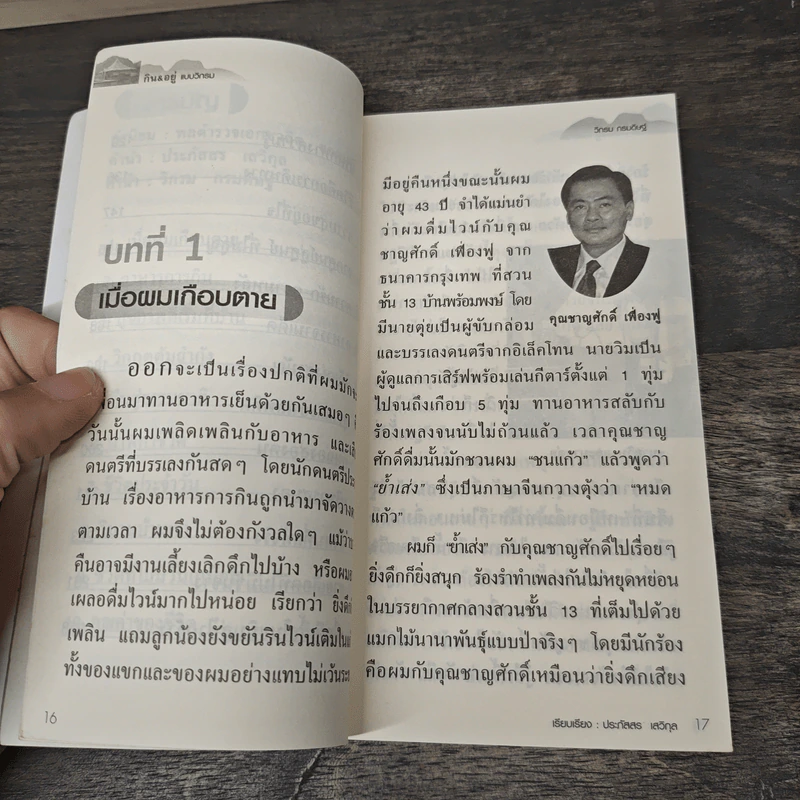 กิน&อยู่ แบบวิกรม
บทที่ 1
เมื่อผมเกือบตาย
ออกจะเป็นเรื่องปกติที่ผมมัก
มาทานอาหารเย็นด้วยกันเสมอๆ
วันนั้นผมเพลิดเพลินกับอาหาร และ
ดนตรีที่บรรเลงกันสดๆ โดยนักดนตรีประ
บ้าน เรื่องอาหารการกินถูกนำมาจัดวาง
ตามเวลา ผมจึงไม่ต้องกังวลใดๆ แม้ว่า
คืนอาจมีงานเลี้ยงเลิกดึกไปบ้าง หรือผม
เผลอดื่มไวน์มากไปหน่อย เรียกว่า ยิ่งดึก
เพลิน แถมลูกน้องยังขยันรินไวน์เติมใน
ทั้งของแขกและของผมอย่างแทบไม่เว้นระ
16
วิกรม กรมดิษฐ์
มีอยู่คืนหนึ่งขณะนั้นผม
อายุ 43 ปี จำได้แม่นยำ
ว่าผมดื่มไวน์กับคุณ
ชาญศักดิ์ เฟื่องฟู จาก
ธนาคารกรุงเทพ ที่สวน
ชั้น 13 บ้านพร้อมพงษ์ โดย
มีนายตุ่ยเป็นผู้ขับกล่อม
คุณชาญศักดิ์ เฟื่องฟู
และบรรเลงดนตรีจากอิเล็คโทน นายวิมเป็น
ผู้ดูแลการเสิร์ฟพร้อมเล่นกีตาร์ตั้งแต่ 1 ทุ่ม
ไปจนถึงเกือบ 5 ทุ่ม ทานอาหารสลับกับ
ร้องเพลงจนนับไม่ถ้วนแล้ว เวลาคุณชาญ
ศักดิ์ดื่มนั้นมักชวนผม “ชนแก้ว” แล้วพูดว่า
“ย้ำเส่ง” ซึ่งเป็นภาษาจีนกวางตุ้งว่า “หมด
แก้ว”
ผมก็ “ย้ำเส่ง” กับคุณชาญศักดิ์ไปเรื่อยๆ
ยิ่งดึกก็ยิ่งสนุก ร้องรำทำเพลงกันไม่หยุดหย่อน
ในบรรยากาศกลางสวนชั้น 13 ที่เต็มไปด้วย
แมกไม้นานาพันธุ์แบบป่าจริงๆ โดยมีนักร้อง
คือผมกับคุณชาญศักดิ์เหมือนว่ายิ่งดึกเสียง
เรียบเรียง : ประภัสสร เสวิกุล 17